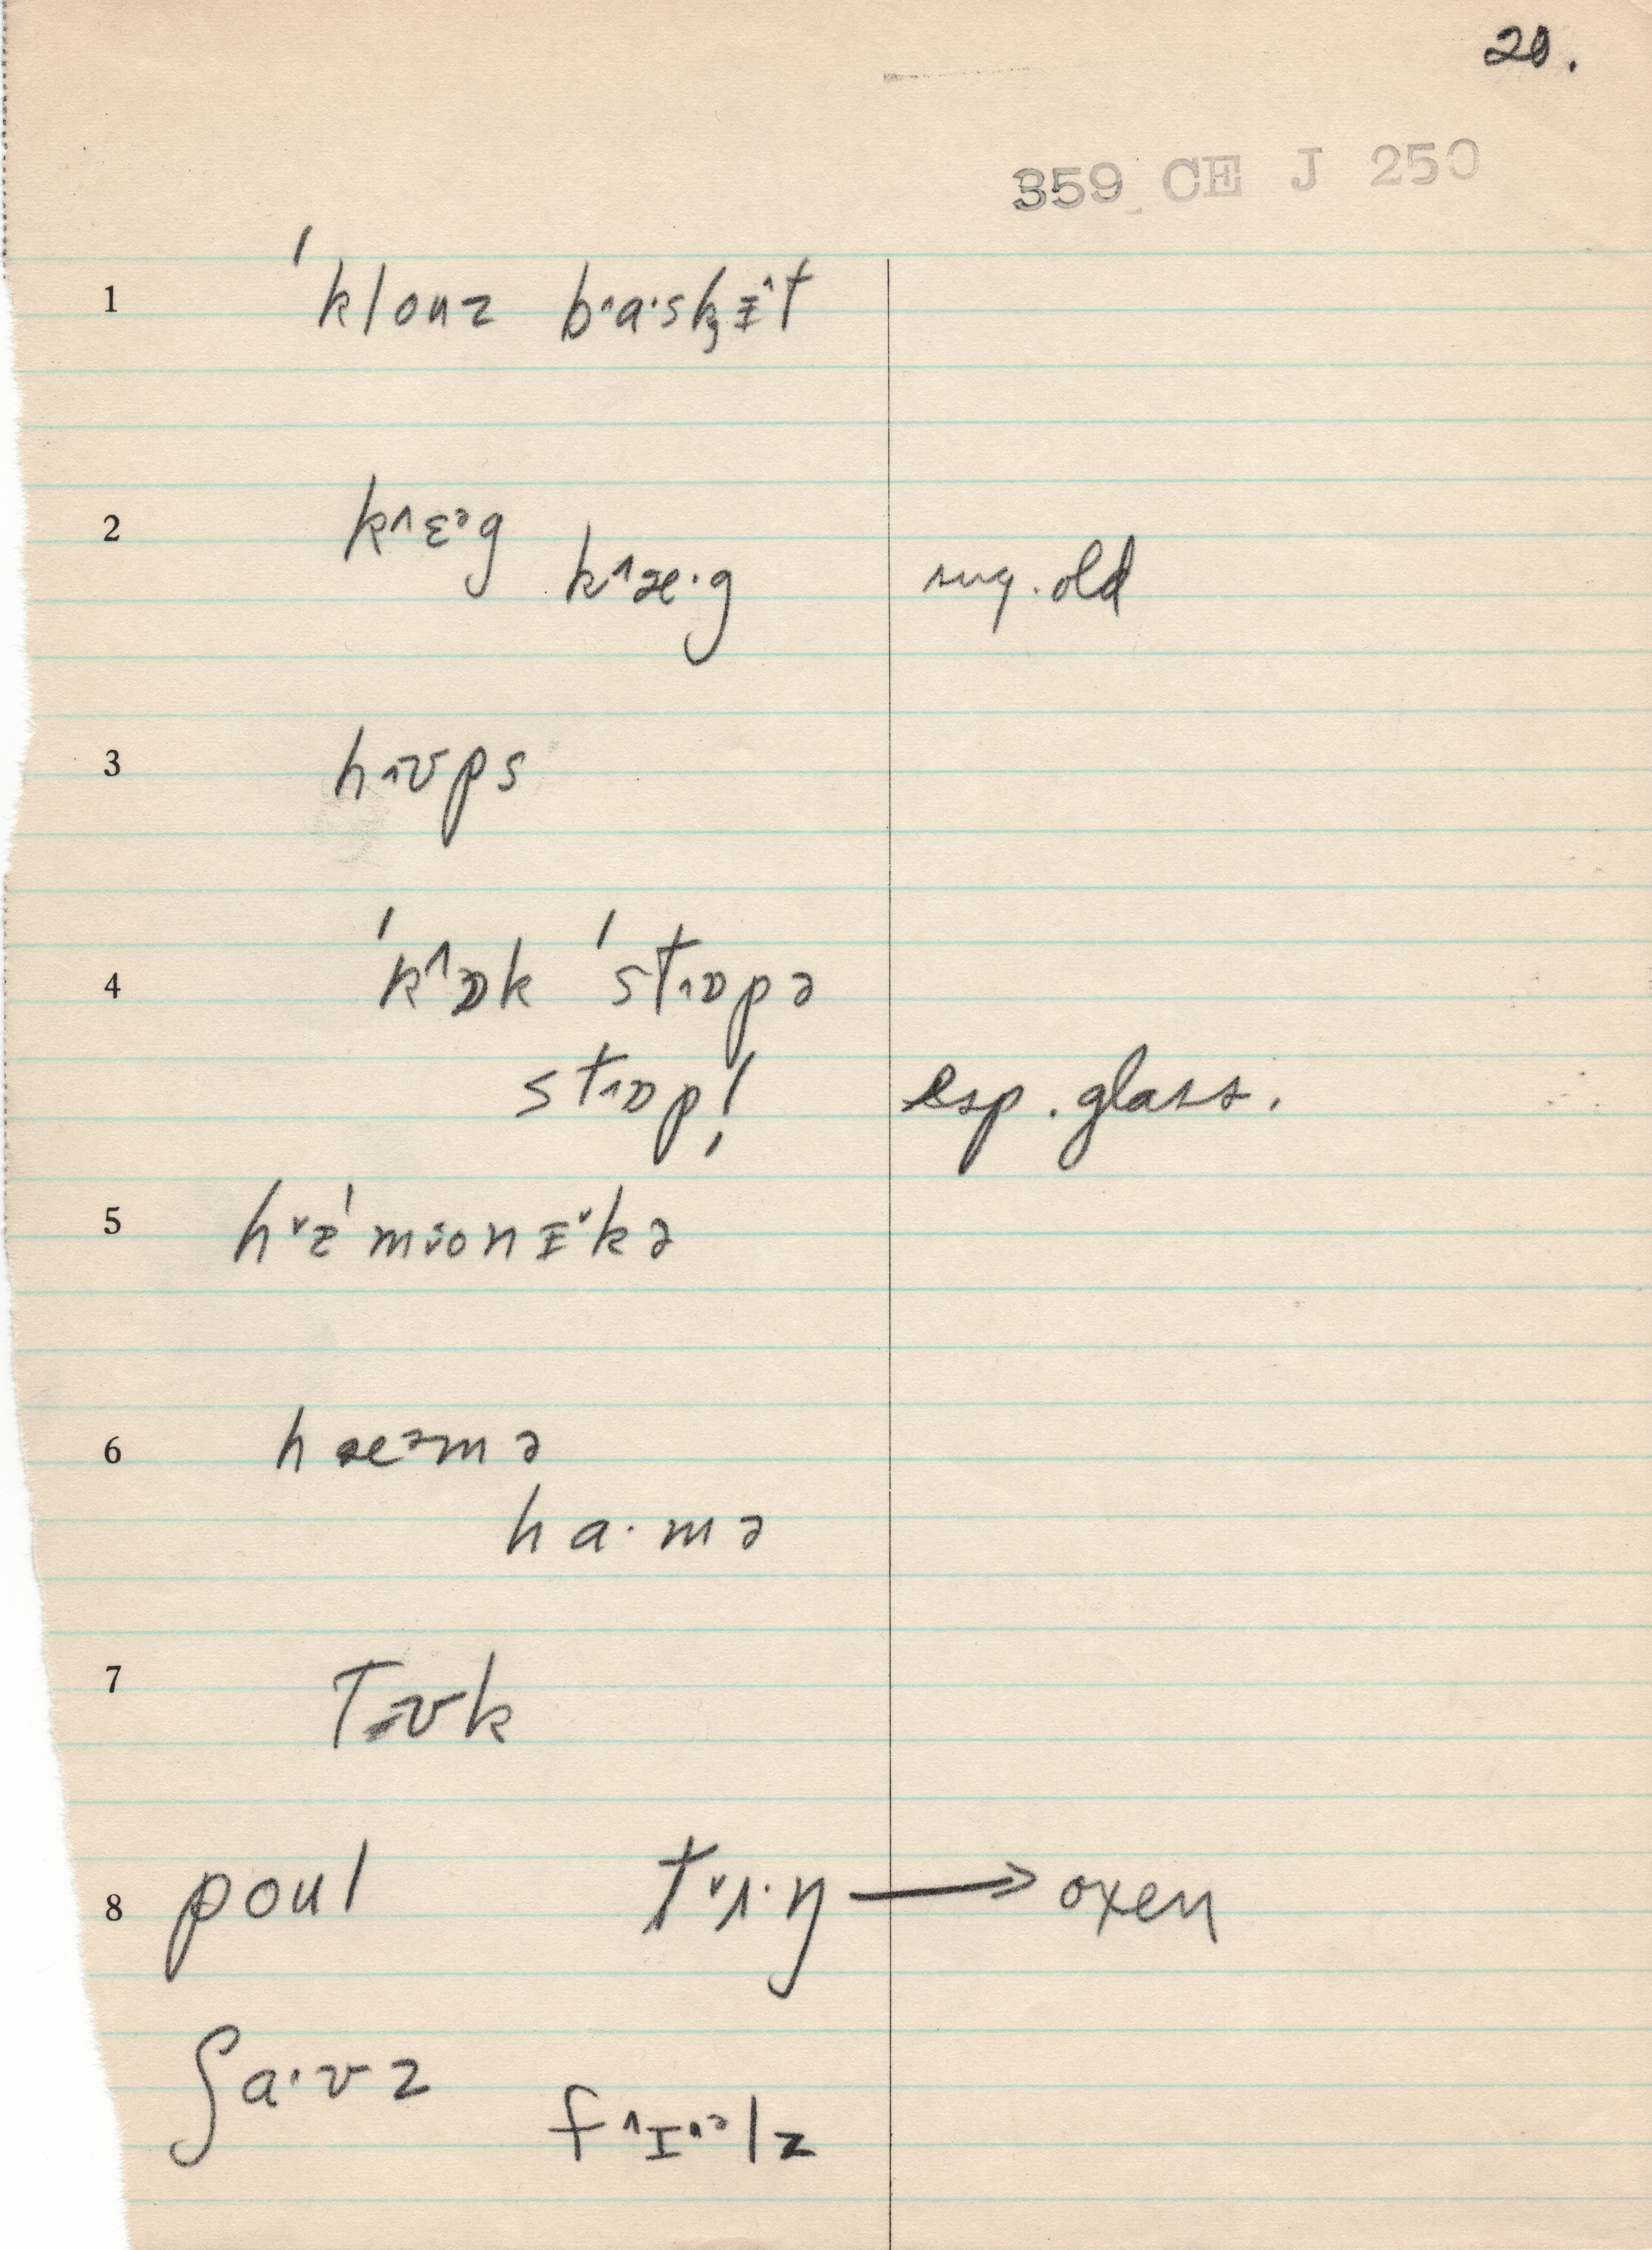 20.
359 CE J 250
1 ˈklouz b˄a·sk̡ɪ˄t
2 k˄ɛᵊg k˄æ·g sug. old
3 h˄ʊps
4 ˈk˄ɒk ˈst˄ɒpə
st˄ɒp! esp. glass.
5 hˈmonɪ˅kə
6 hæᵊmə
ha·mə
7 Tʊk
8 poul t˅ɪ·ŋ → oxen
ʃa·vz f˄ɪ·ᵊlz